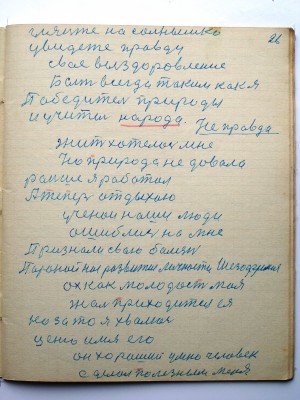 гляните на солнышко
26
увидете правду
свае выздоровление
Быть всегда таким как я
Победител природы
и учител народа.
Не правда
жит хотелос мне
Но природа не довала
раньше я работал
А тепер отдыхаю
ученои наши люди
ошиблис на мне
Признали сваю болезн
Параной ное развитие личности
ох как молодост моя
жал приходится ея
но за то я хвалюс
цень имя его
он хороший умно человек
сделал полезным меня